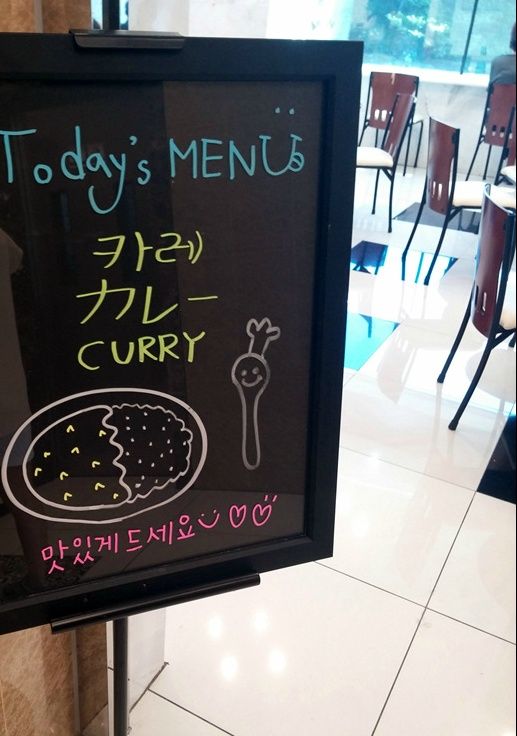 Today's MENU
카레
カレー
CURRY
맛있게 드세요